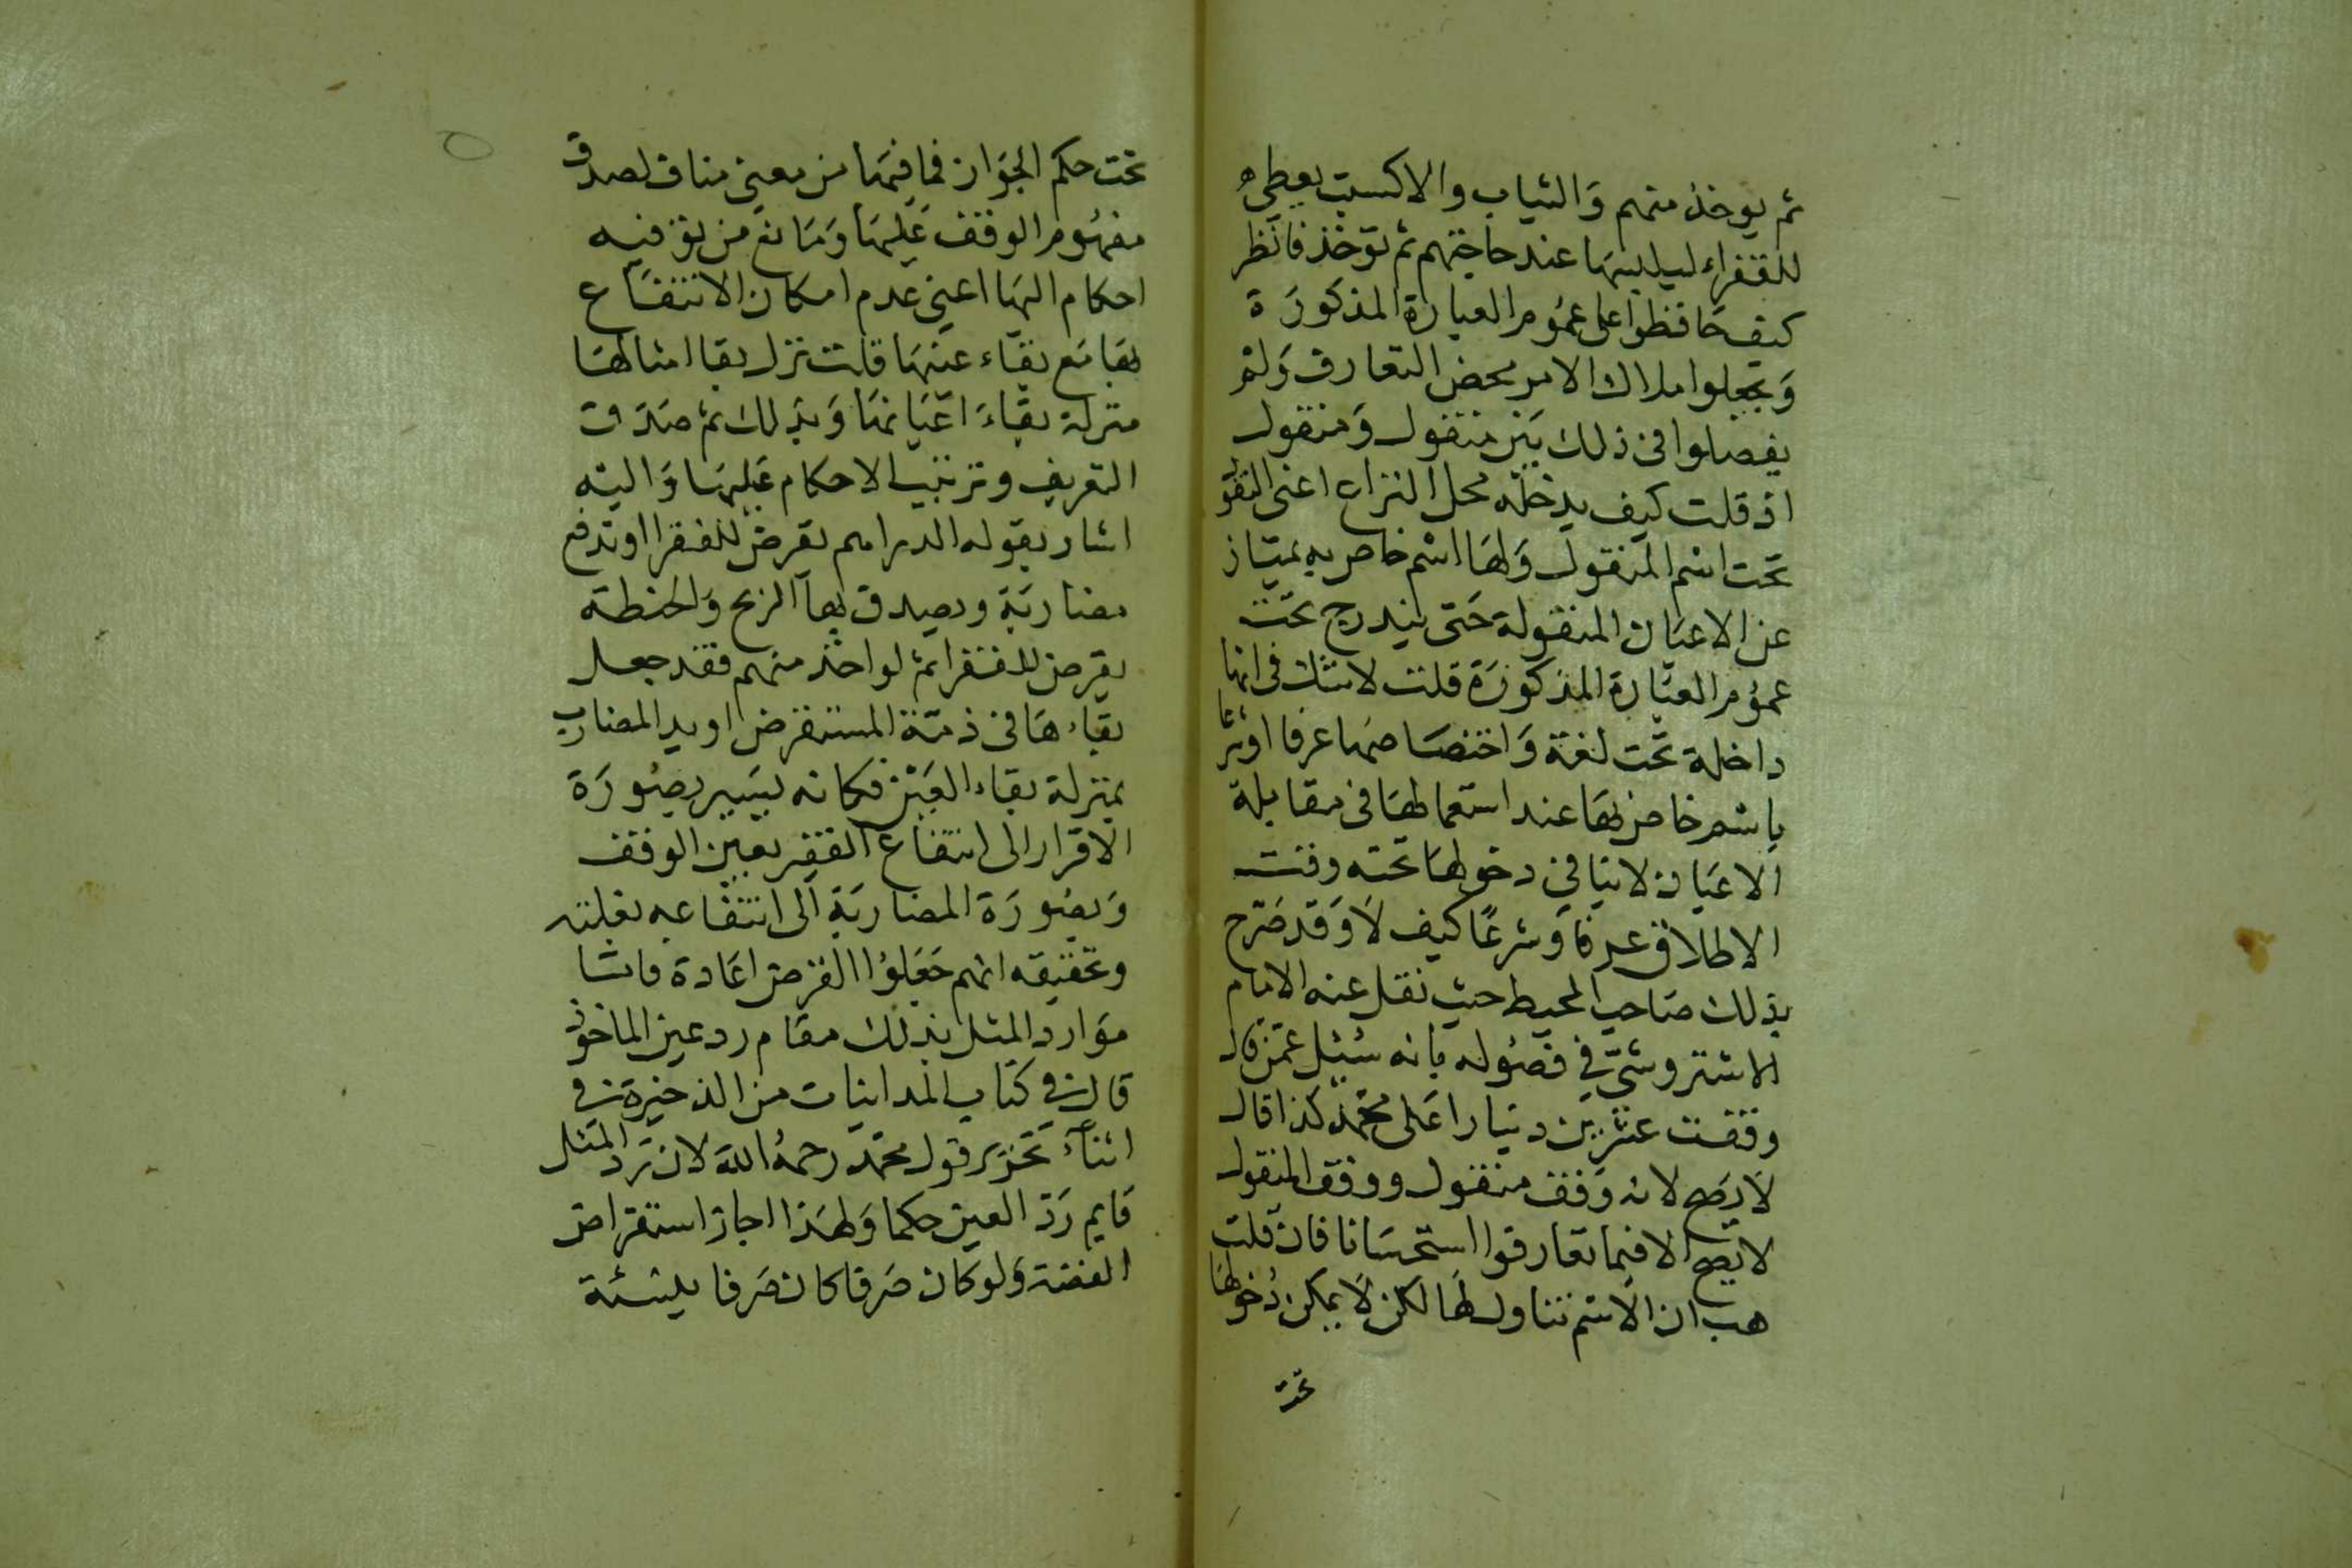 ثم يوخذ منهم وَالثياب والاكسية يعطى
للفقراء ليلبسهَا عند حاجتهم ثم توخذ فانظر
كيف حَافظوا على عمُوم العبارة المذكورَة
وَيجعلوا ملاك الامر محض التعارف وَلم
يفصلوا فى ذلك بَين منقول وَمنقول
اذ قلت كيف يدخله محل النزاع اعنى النقو
تحت اسْم المنقول وَلهَا اسْم خاص به يمتاز
عن الاعيَان المنقولة حَتى يندرج تحت
عمُوم العبَارة المذكورَة قلت لا شك فى انها
داخلة تحت لغة وَاختصَاصهَا عرفا او شرعا
باسْم خاص بهَا عند استعمالهَا فى مقابلة
الاعيَان لا ينافى دخولهَا تحته وقت
الاطلاق عرفا وَشرعًا كيف لَا وَقد صَرّح
بذلك صَاحب المحيط حيث نقل عنه الامام
الاشتروشنى في فصُوله بانه سُئِل عمّن قال
وقفت عشرين دينارا عَلى محمّد كذا قال
لَا يَصح لانه وَقف منقول ووقف المنقول
لا يصح الا فيما تعارفوا استحسَانا فان قلت
هب ان الَاسْم تناول لهَا لكن لَا يمكن دُخولها
تحت
تحت حكم الجَواز فما فيهَا من معنى مناف لصدق
مفهُوم الوقف عَليهَا وَمَانع من توفيه
احكام اليهَا اعنى عدم امكان الانتفَاع
بهَا مَع بقَاء عينهَا قلت نزل بقا امثالهَا
منزلة بقَاءَ اعيَانهَا وَبذلك ثم صَدَق
التعريف وترتيب الاحكام عَليهَا وَاليه
اشار بقوله الدراهم تقرض للفقرا او تدفع
مضاربَة ويصدق بهَا الربح وَالحنطة
يقرض للفقرا ثم لو اخذ منهم فقد جعل
بقَاءهَا فى ذمّة المستقرض او يد المضارب
بمنزلة بقاء العَيْن فكانه يسَير بصُورَة
الاقرار الى انتفاع الفقير بعين الوقف
وَبصُورَة المضاربَة الى انتفاعه بغلته
وتحقيقه انهم جَعَلوُا القرض اعَادة فاشا
موَارد المثل بذلك مقام رد عين الماخوذ
قال في كتاب المداينات من الذخيرة في
اثنآء تحرير قول محمّد رحمهُ الله لان رَد المثل
قَايم رَدّ العين حكما وَلهَذا اجاز استقراض
الفضة وَلو كان صَرفا كان صَرفا بنسئة